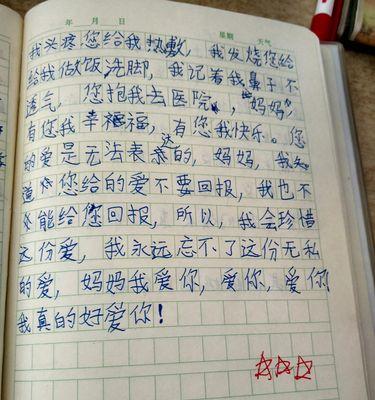 年 月 日 星期 天气
我头疼您给我热敷,我发烧您给
给我做饭洗脚,我记着我鼻子不
透气,您抱我去医院,"妈妈",
有您我幸福,有您我快乐。您
的爱是无法表达的,妈妈,我知
道您给的爱不要回报,我也不
能给您回报,所以,我会珍惜
这份爱,我永远忘不了这份无私
的爱,妈妈我爱你,爱你,爱你
我真的好爱你!